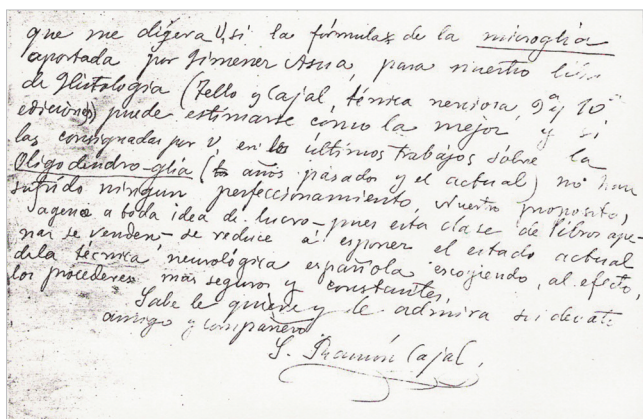 que me dijera V, si la fórmula de la microglia
aportada por Jimenez Asua, para nuestro libro
de Histología (Tello y Cajal, técnica nerviosa, 9ª y 10ª
ediciones) puede estimarse como la mejor y si
las consignadas por V, en los últimos trabajos sobre la
Oligodendro-glia (años pasados y el actual) no han
sufrido ningun perfeccionamiento, Nuestro proposito,
ageno a toda idea de lucro-pues esta clase de libros ape-
nas se venden-se reduce a esponer el estado actual
de la técnica neurológica española escogiendo, al efecto,
los procederes mas seguros y constantes,
Sabe le quiere y le admira su devoto
amigo y compañero
S. Ramón Cajal,